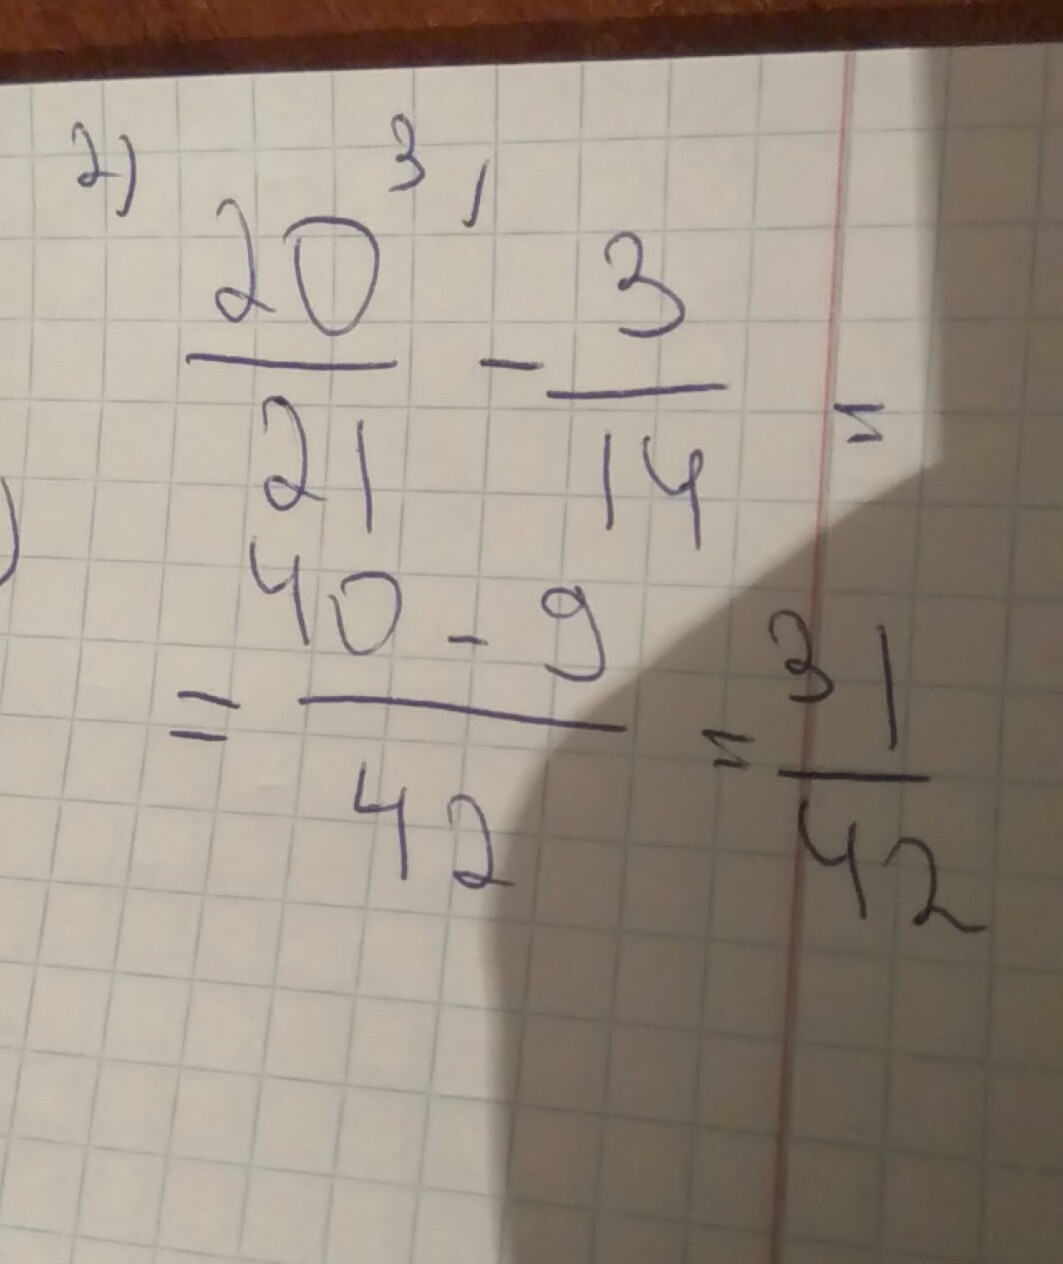 2)
3,
20/21 - 3/14 =
= 40 - 9/42 = 31/42
)